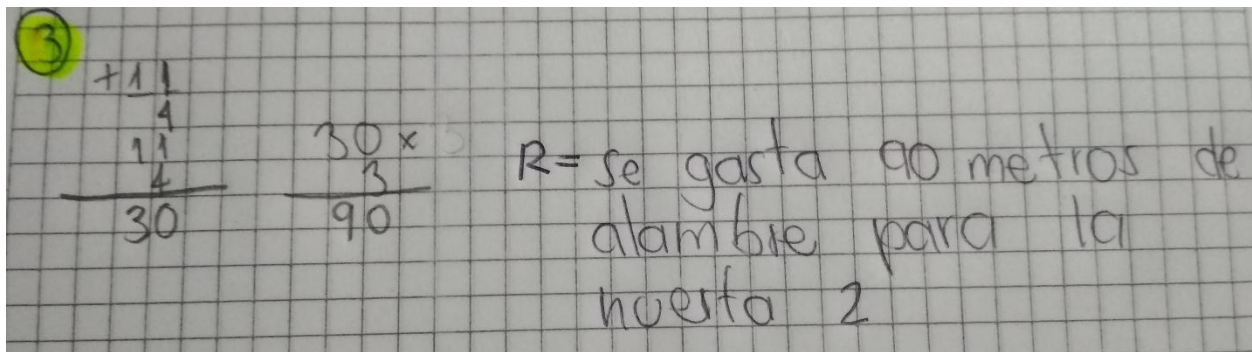 3
+11
4
11
4
30
30 x
3
90
R= se gasta 90 metros de
alambre para la
huerta 2